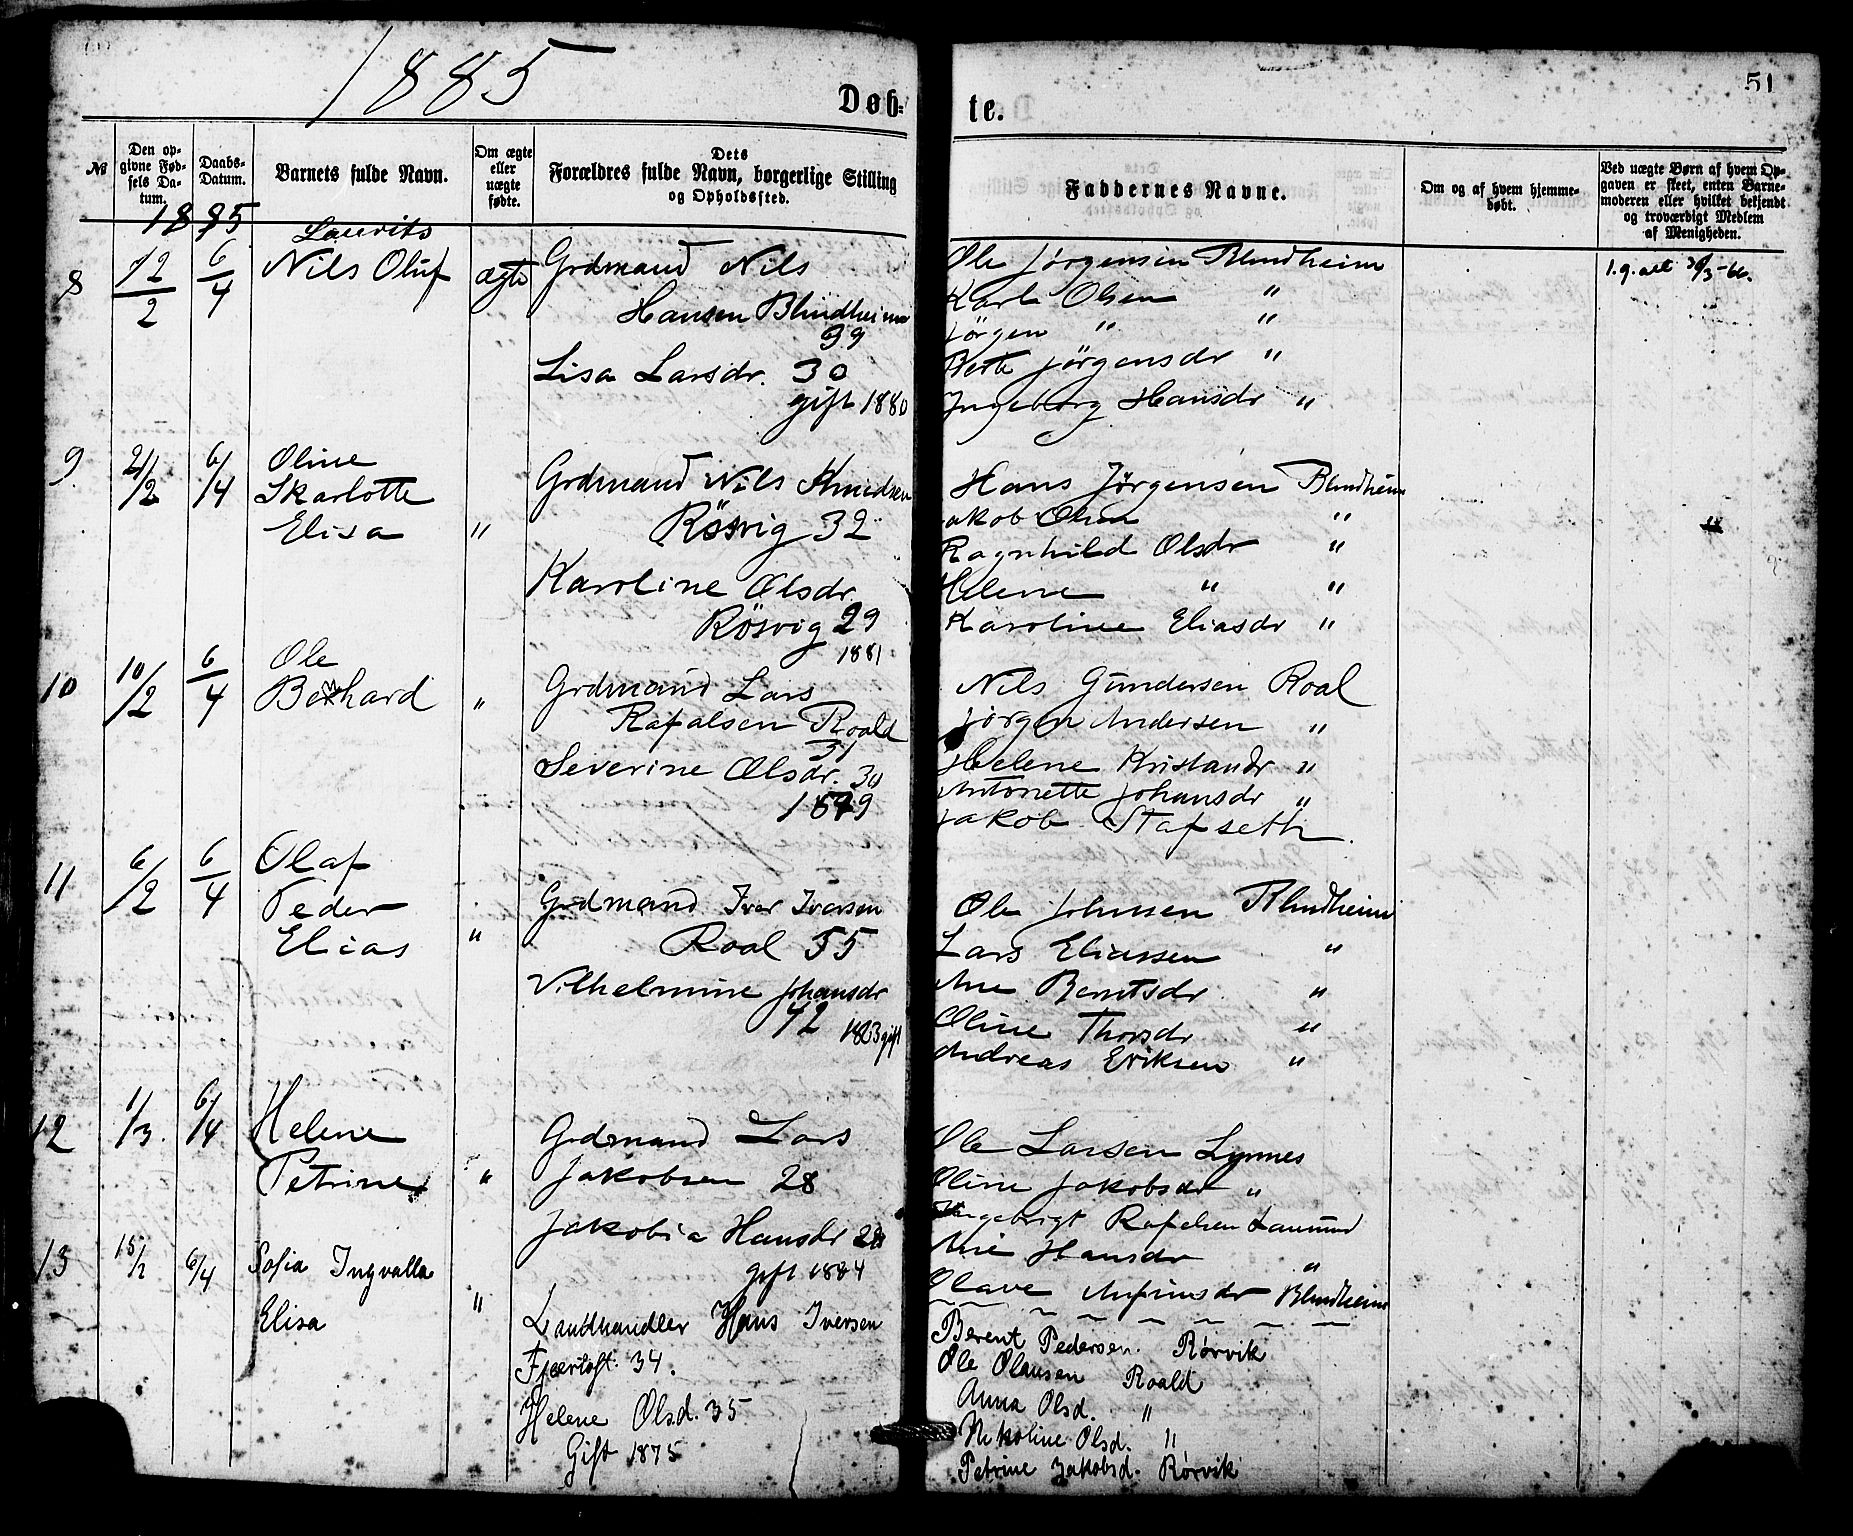 1885
51
Døb-
te.
№
Den op-
givne Fød-
sels Da-
tum.
Daabs-
Datum.
Barnets fulde Navn.
Om ægte
eller
uægte
fødte.
Dets
Forældres fulde Navn, borgerlige Stilling
og Opholdssted.
Faddernes Navne.
Om og af hvem hjemme-
døbt.
Ved uægte Børn af hvem Op-
gaven er skeet, enten Barne-
moderen eller hvilket bekjendt
og troværdigt Medlem
af Menigheden.
1885
8
12/2
6/4
Lauvits
Nils Oluf
ægte
Grdmand Nils
Hansen Blindheim
39
Lisa Larsdr. 30
gift 1880
Ole Jørgensen Blindheim
Karl Olsen "
Jørgen " "
Berte Jørgensdr "
Ingeborg Hansdr "
9
21/2
6/4
Oline
Skarlotte
Elisa
"
Grdmand Nils Knudsen
Rösvig 32
Karoline Olsdr.
Rösvig 29
1881
Hans Jørgensen Blindheim
Jakob Olsen "
Ragnhild Olsdr "
Helene " "
Karoline Eliasdr "
10
10/2
6/4
Ole
Bernhard
"
Grdmand Lars
Rafalsen Roald
31
Severine Olsdr. 30
1879
Nils Gundersen Roal
Jørgen Andersen "
Helene Kristiandr "
Antonette Johansdr "
Jakob Stafseth
11
6/2
6/4
Olaf
Peder
Elias
"
Grdmand Iver Iversen
Roal 55
Vilhelmine Johansdr
42 1863 gift
Ole Johnsen Blindheim
Lars Eliassen "
Ane Berntsdr "
Oline Thorsdr "
Andreas Eriksen "
12
1/3
6/4
Helene
Petrine
"
Grdmand Lars
Jakobsen 28
Jakobia Hansdr 28
gift 1884
Ole Larsen Synnes
Oline Jakobsdr "
Ingebrigt Rafelsen
Ane Hansdr "
Olave Anfinsdr Blindheim
13
15/2
6/4
Sofia Ingvalla
Elisa
"
Landhandler Hans Iversen
Fjærtoft 34.
Helene Olsd. 35
Gift 1875
Berent Pedersen. Rørvik
Ole Olausen Roald
Anna Olsd. "
Nikoline Olsd. "
Petrine Jakobsd. Rørvik